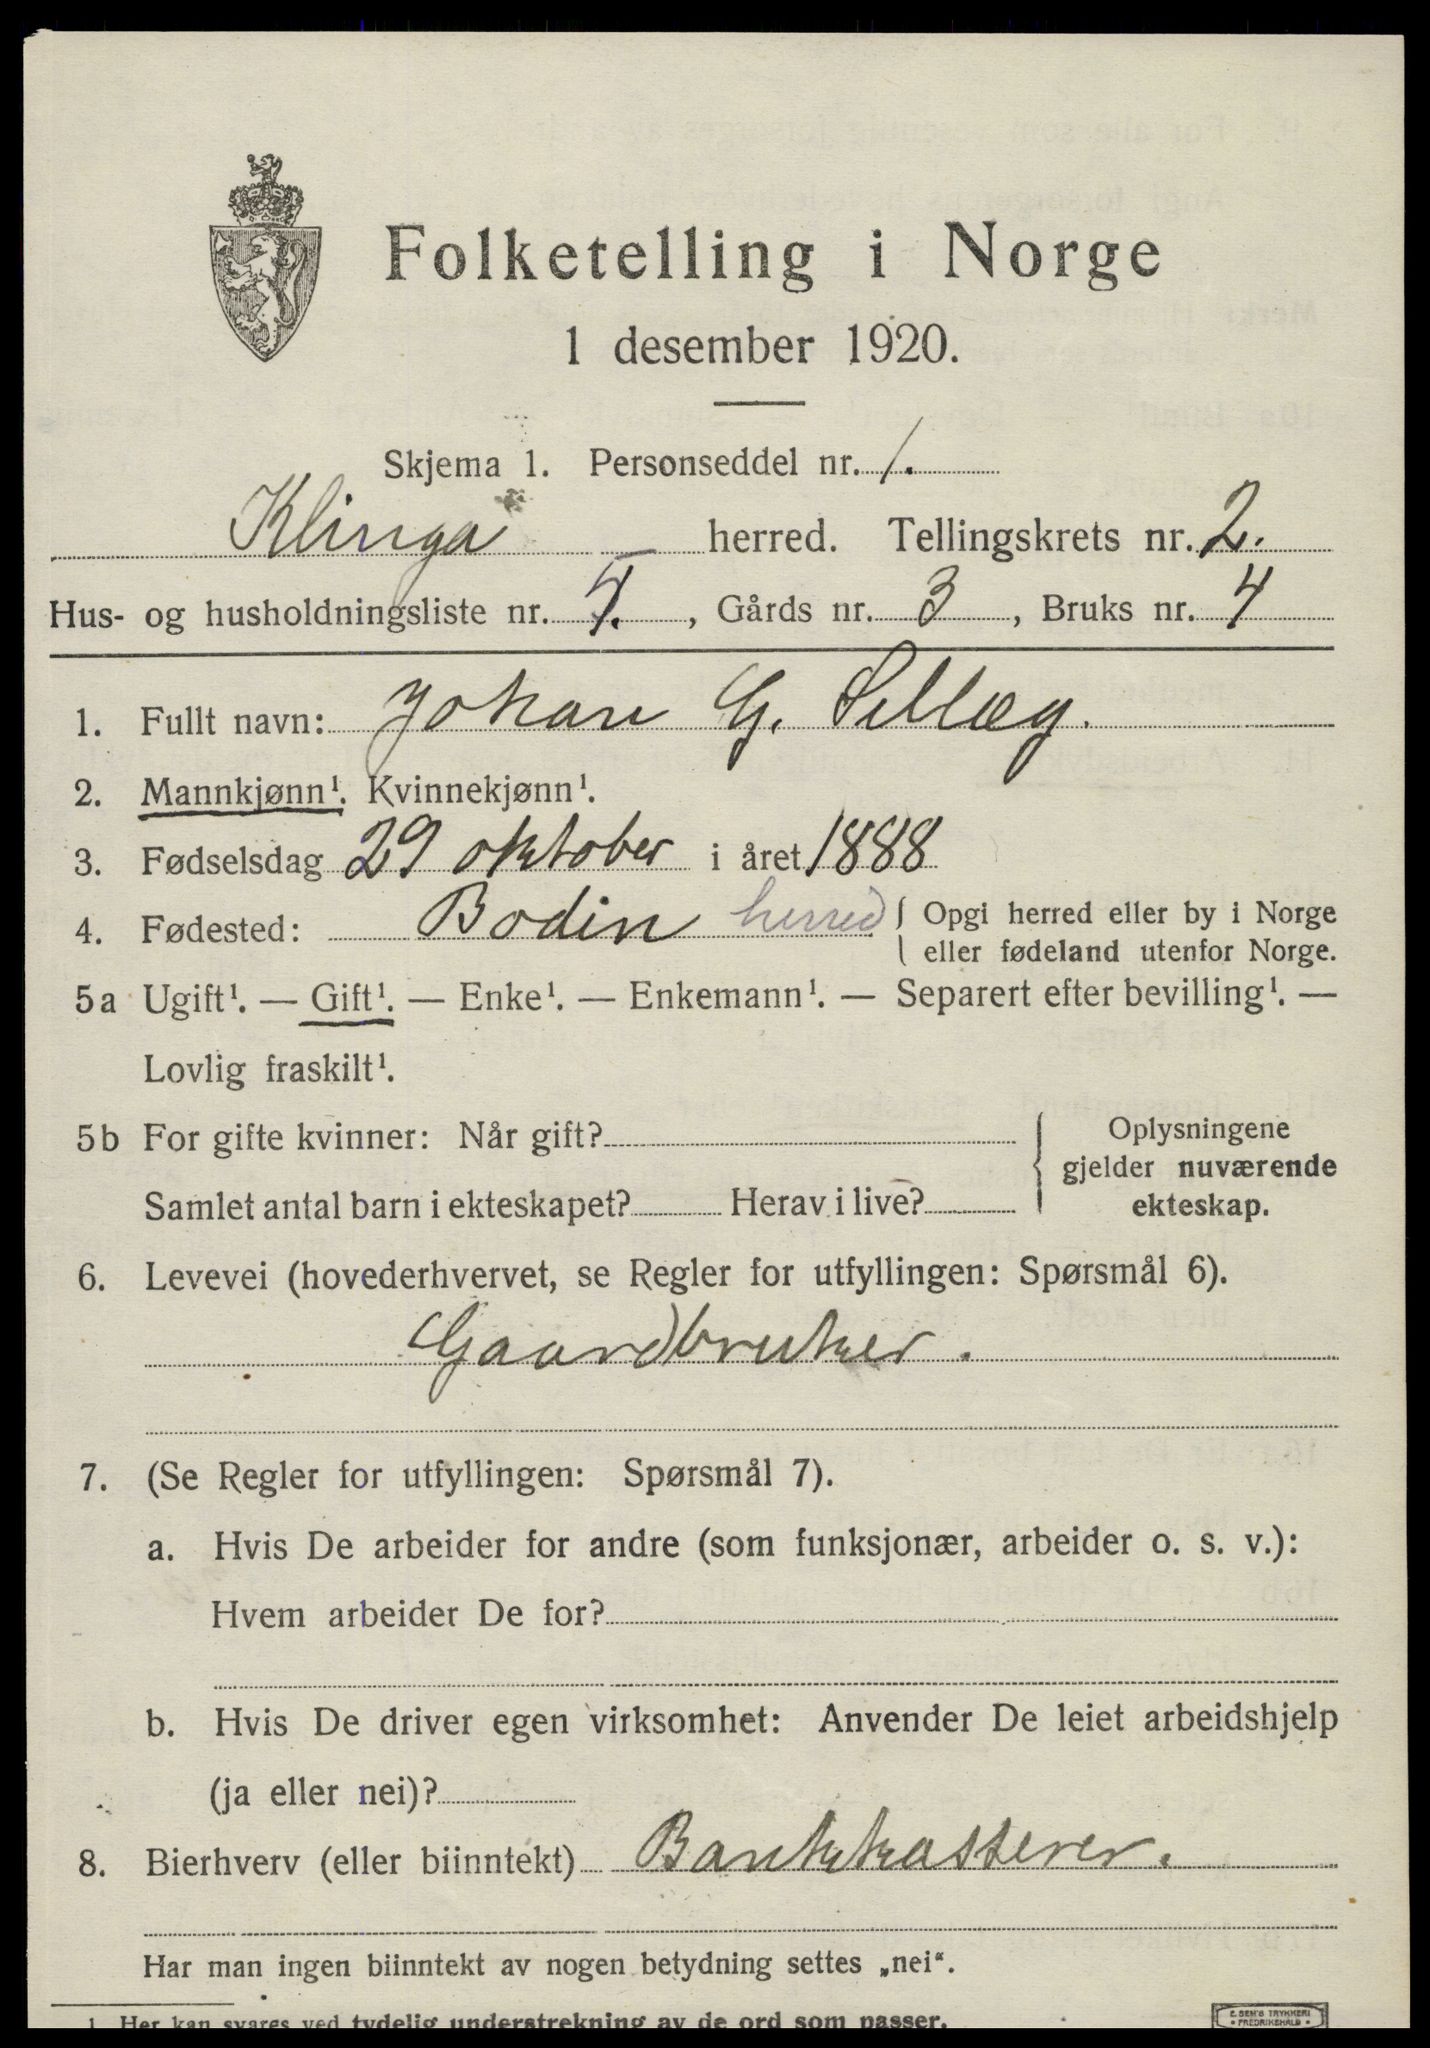 Folketelling i Norge
1 desember 1920.
Skjema 1. Personseddel nr. 1.
Klinga herred. Tellingskrets nr. 2.
Hus- og husholdningsliste nr. , Gårds nr. 3, Bruks nr. 4
1. Fullt navn: Johan G. Sellæg.
2. Mannkjønn¹. Kvinnekjønn¹.
3. Fødselsdag 29 oktober i året 1888
4. Fødested: Bodin herred { Opgi herred eller by i Norge
eller fødeland utenfor Norge.
5a Ugift¹. — Gift¹. — Enke¹. — Enkemann¹. — Separert efter bevilling¹. —
Lovlig fraskilt¹.
5b For gifte kvinner: Når gift?
Samlet antal barn i ekteskapet? Herav i live?
{ Oplysningene
gjelder nuværende
ekteskap.
6. Levevei (hovederhvervet, se Regler for utfyllingen: Spørsmål 6).
Gaardbruker.
7. (Se Regler for utfyllingen: Spørsmål 7).
a. Hvis De arbeider for andre (som funksjonær, arbeider o. s. v.):
Hvem arbeider De for?
b. Hvis De driver egen virksomhet: Anvender De leiet arbeidshjelp
(ja eller nei)?
8. Bierhverv (eller biinntekt) Bankkasserer.
Har man ingen biinntekt av nogen betydning settes „nei“.
1 Her kan svares ved tydelig understrekning av de ord som passer.
E. SEM'S TRYKKERI
• FREDRIKSHALD •